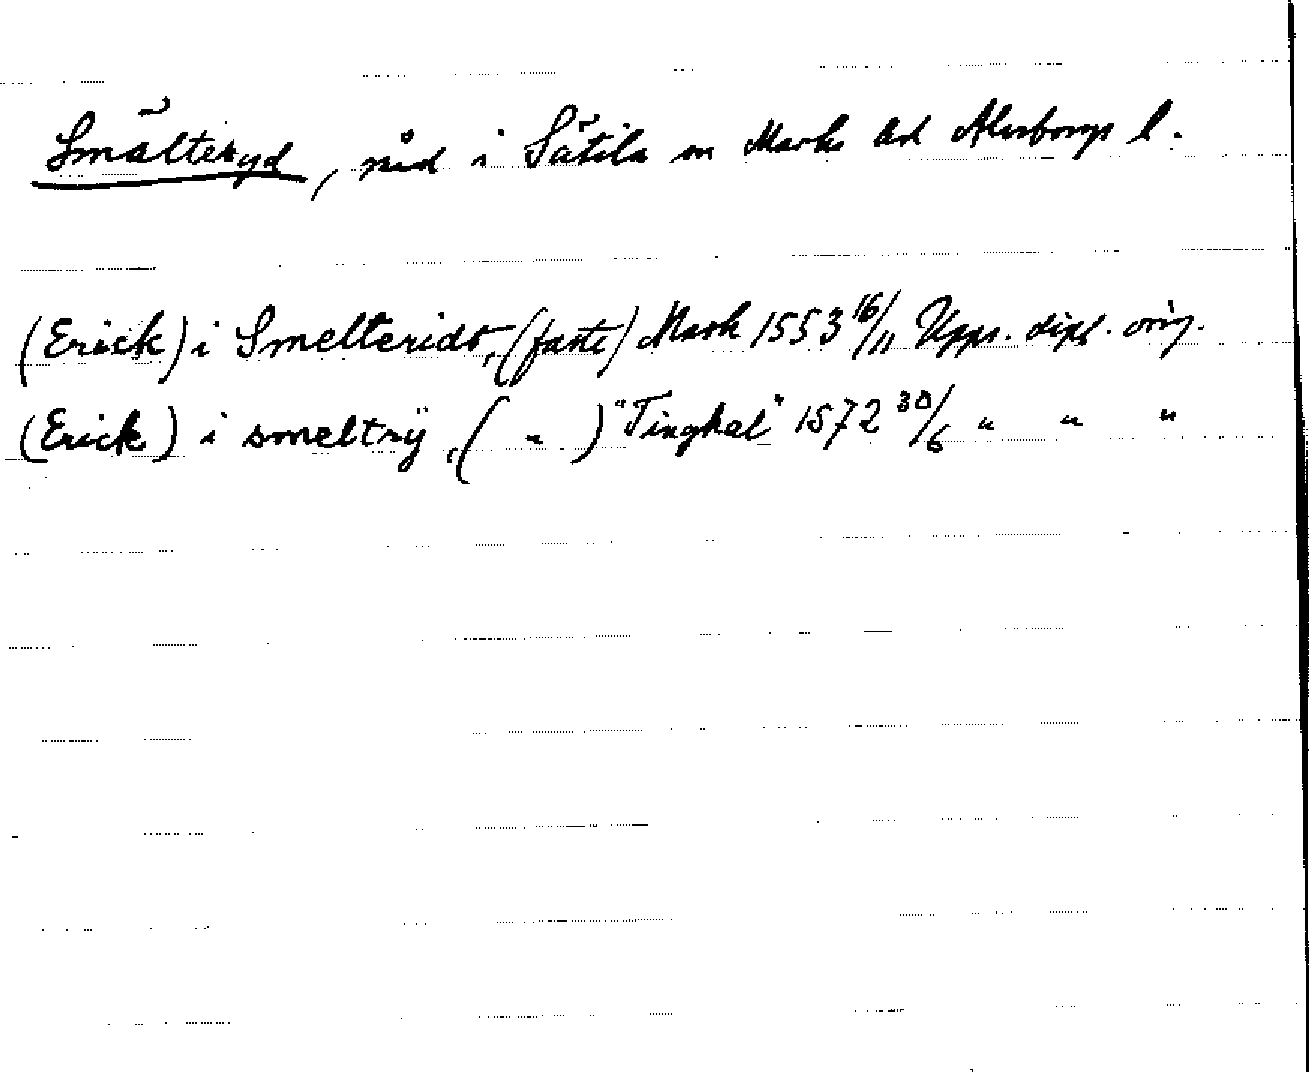 Smälteryd, nid i Sätila sn Marks hd Älvsborgs l.
(Erick) i Smelteridt, (faste) Mark 1553 16/11 Upps. dipl. orig.
(Erick) i smeltrÿ, ( " ) "Tinghal" 1572 30/6 " " "